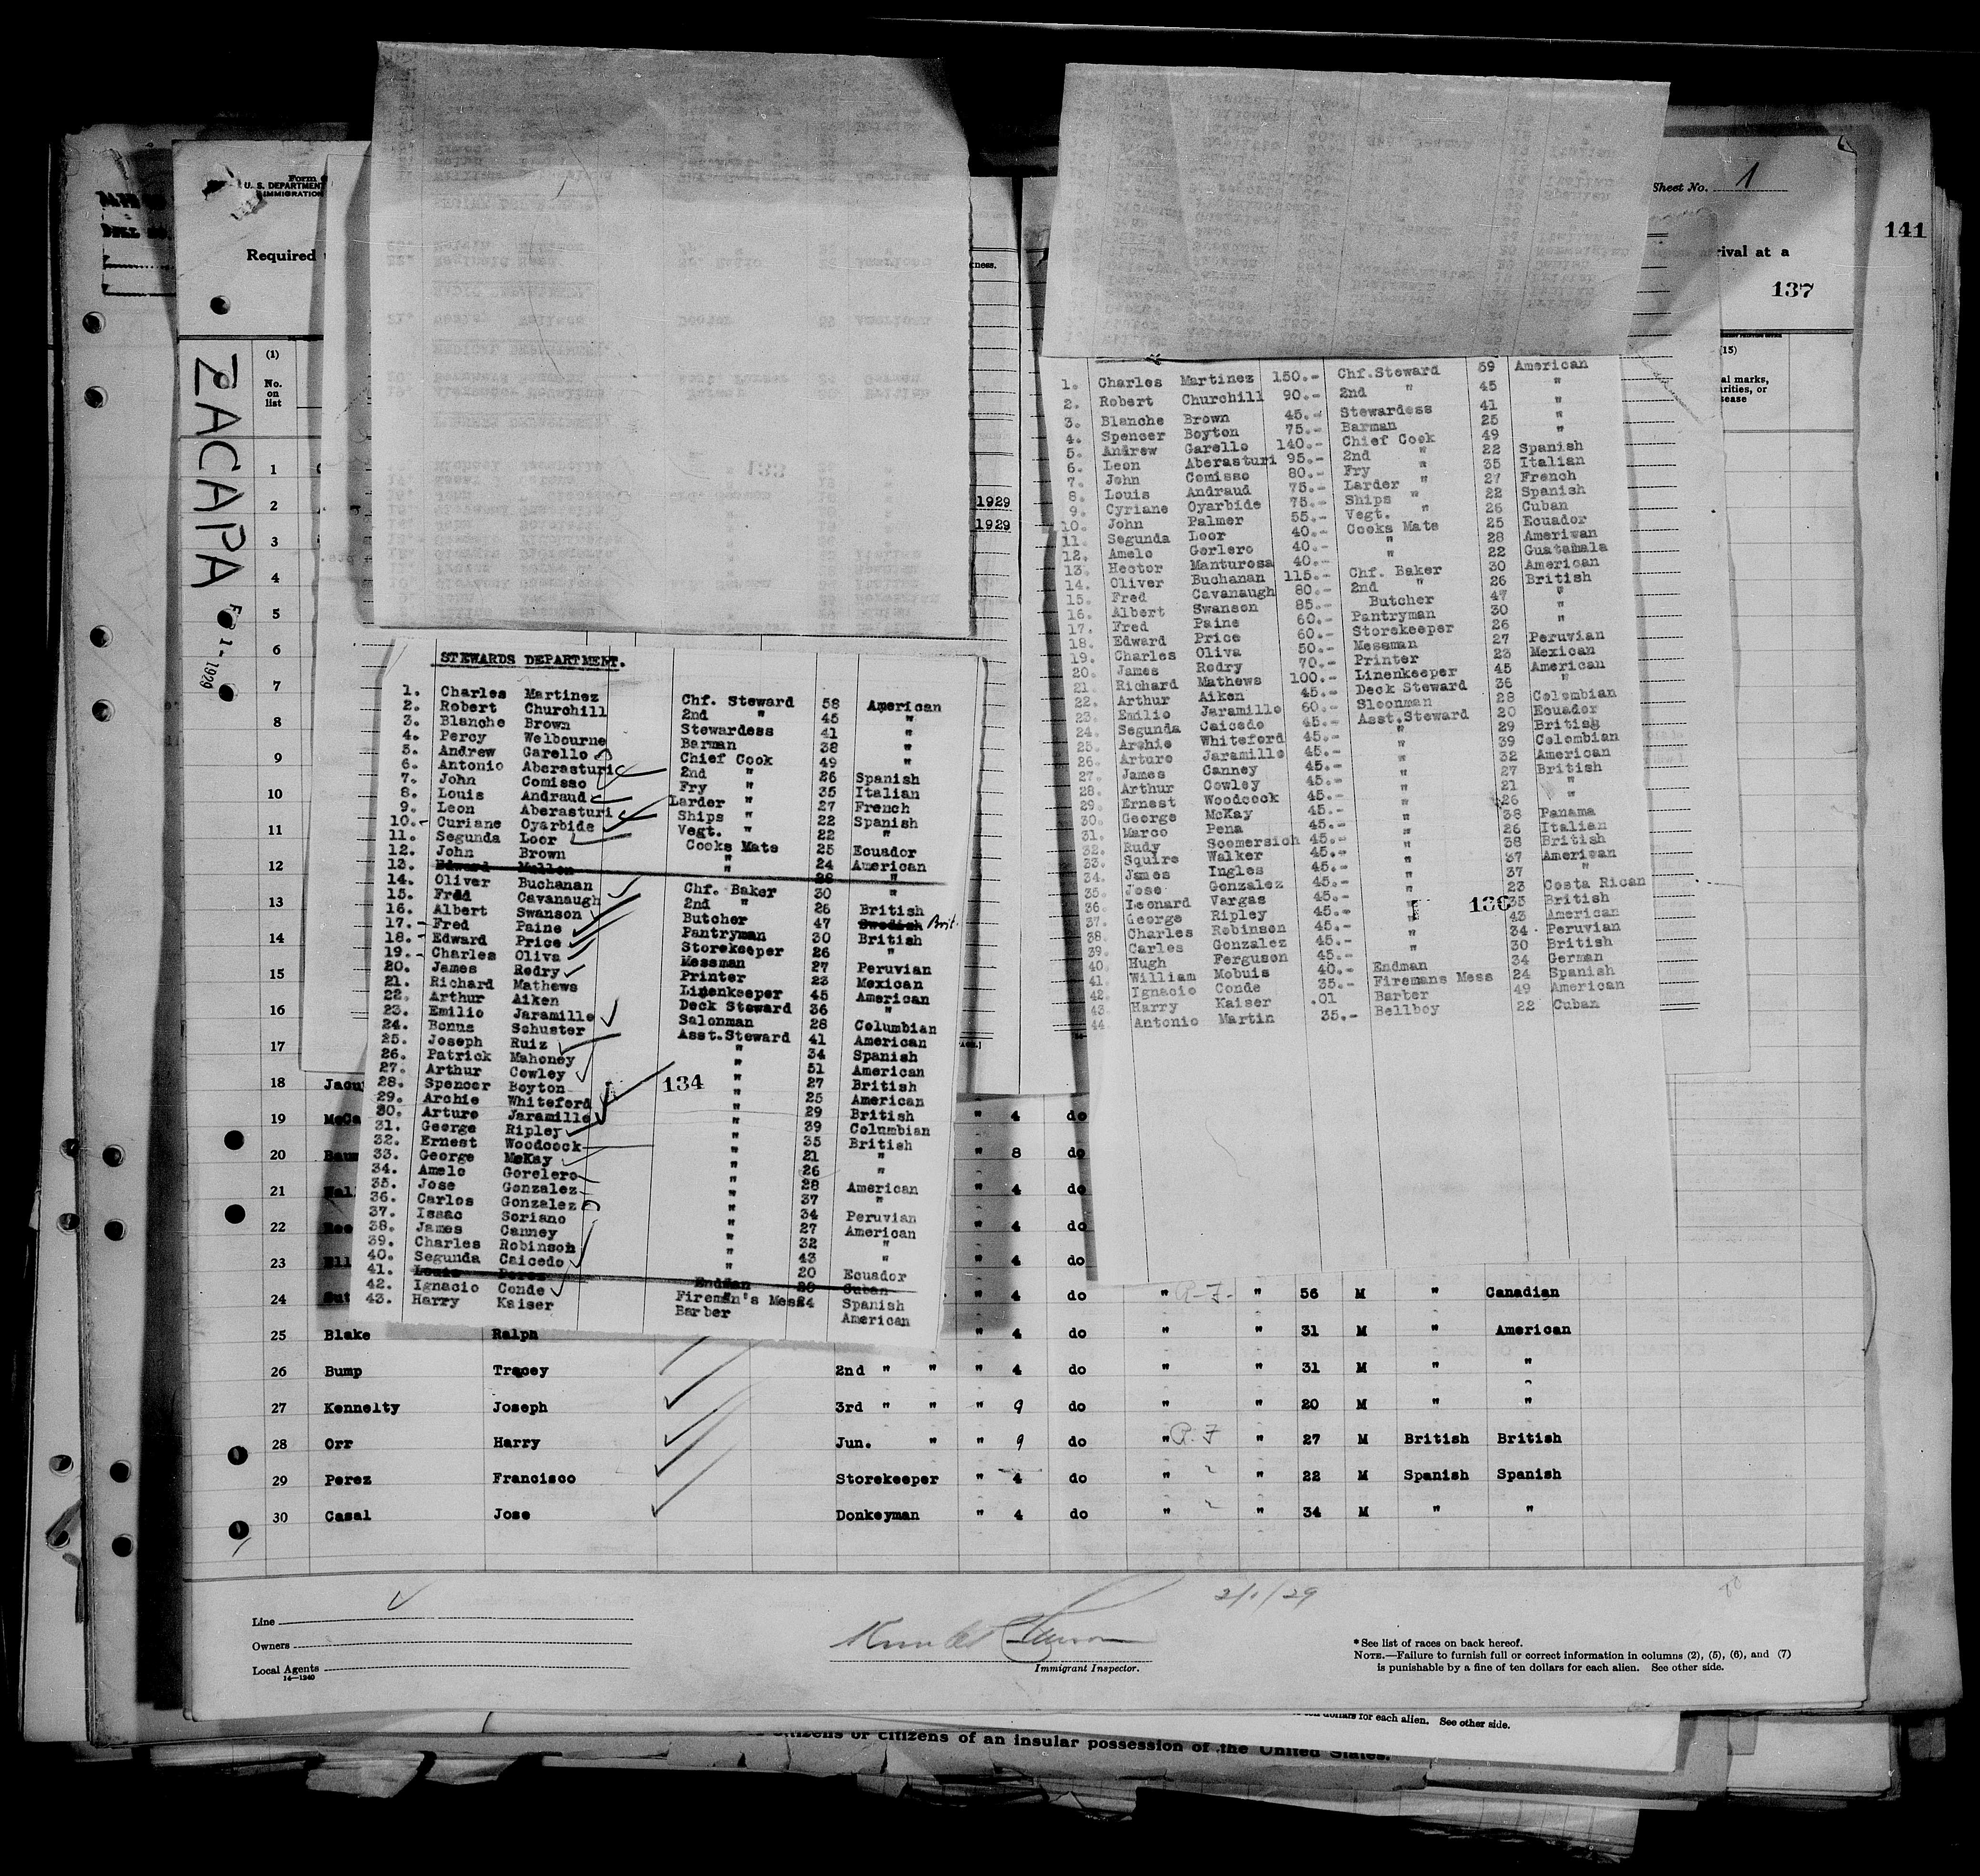 Form
U. S. DEPARTMENT
IMMIGRATION
Required
Sheet No. 1
rival at a
137
141
ZACAPA
1929
(1)
No.
on
list
(15)
al marks,
rities, or
sease
133
1929
1929
STEWARDS DEPARTMENT.
1. Charles Martinez Chf. Steward 58 American
2. Robert Churchill 2nd " 45 "
3. Blanche Brown Stewardess 41 "
4. Percy Welbourne Barman 38 "
5. Andrew Garello Chief Cook 49 "
6. Antonio Aberasturi 2nd " 26 Spanish
7. John Comisso Fry " 35 Italian
8. Louis Andraud Larder " 27 French
9. Leon Aberasturi Ships " 22 Spanish
10. Curiane Oyarbide Vegt. " 22 "
11. Segunda Loor Cooks Mate 25 Ecuador
12. John Brown " 24 American
13. Edward Mallon " 28 "
14. Oliver Buchanan Chf. Baker 30 "
15. Fred Cavanaugh 2nd " 26 British
16. Albert Swanson Butcher 47 Swedish Brit.
17. Fred Paine Pantryman 30 British
18. Edward Price Storekeeper 26 "
19. Charles Oliva Messman 27 Peruvian
20. James Redry Printer 23 Mexican
21. Richard Mathews Linenkeeper 45 American
22. Arthur Aiken Deck Steward 36 "
23. Emilio Jaramille Salonman 28 Columbian
24. Bonus Schuster Asst.Steward 41 American
25. Joseph Ruiz " 34 Spanish
26. Patrick Mahoney " 51 American
27. Arthur Cowley " 27 British
28. Spencer Boyton " 25 American
29. Archie Whiteford " 29 British
30. Arturo Jaramille " 39 Columbian
31. George Ripley " 35 British
32. Ernest Woodcock " 21 "
33. George McKay " 26 "
34. Amelo Gorelero " 28 American
35. Jose Gonzalez " 37 "
36. Carlos Gonzalez " 34 Peruvian
37. Issac Soriano " 27 American
38. James Canney " 32 "
39. Charles Robinson " 43 "
40. Segunda Caicedo " 20 Ecuador
41. Louis Perez Endman 20 Cuban
42. Ignacio Conde Fireman's Mess 24 Spanish
43. Harry Kaiser Barber American
134
1. Charles Martinez 150.- Chf.Steward 59 American
2. Robert Churchill 90.- 2nd " 45 "
3. Blanche Brown 45.- Stewardess 41 "
4. Spencer Boyton 75.- Barman 25 "
5. Andrew Garello 140.- Chief Cook 49 "
6. Leon Aberasturi 95.- 2nd " 22 Spanish
7. John Comisso 80.- Fry " 35 Italian
8. Louis Andraud 75.- Larder " 27 French
9. Cyriane Oyarbide 75.- Ships " 22 Spanish
10. John Palmer 55.- Vegt. " 26 Cuban
11. Segunda Loor 40.- Cooks Mate 25 Ecuador
12. Amelo Gorlero 40.- " 28 Ameriwan
13. Hector Manturosa 40.- " 22 Guatamala
14. Oliver Buchanan 115.- Chf. Baker 30 American
15. Fred Cavanaugh 80.- 2nd " 26 British
16. Albert Swanson 85.- Butcher 47 "
17. Fred Paine 60.- Pantryman 30 "
18. Edward Price 60.- Storekeeper 26 "
19. Charles Oliva 50.- Messman 27 Peruvian
20. James Redry 70.- Printer 23 Mexican
21. Richard Mathews 100.- Linenkeeper 45 American
22. Arthur Aiken 45.- Deck Steward 36 "
23. Emilio Jaramille 60.- Sloonman 28 Colombian
24. Segunda Caicedo 45.- Asst.Steward 20 Ecuador
25. Archie Whiteford 45.- " 29 British
26. Arturo Jaramille 45.- " 39 Colombian
27. James Canney 45.- " 32 American
28. Arthur Cowley 45.- " 27 British
29. Ernest Woodcock 45.- " 21 "
30. George McKay 45.- " 26 "
31. Marco Pena 45.- " 38 Panama
32. Rudy Scomersich 45.- " 26 Italian
33. Squire Walker 45.- " 38 British
34. James Ingles 45.- " 37 American
35. Jose Gonzalez 45.- " 37 "
36. Leonard Vargas 45.- " 23 Costa Rican
37. George Ripley 45.- " 35 British
38. Charles Robinson 45.- " 43 American
39. Carles Gonzalez 45.- " 34 Peruvian
40. Hugh Ferguson 45.- " 30 British
41. William Mobuis 40.- Endman 34 German
42. Ignacio Conde 35.- Firemans Mess 24 Spanish
43. Harry Kaiser .01 Barber 49 American
44. Antonio Martin 35.- Bellboy 22 Cuban
136
1
2
3
4
5
6
7
8
9
10
11
12
13
14
15
16
17
18
19 " 4 do
20 " 8 do
21 " 4 do
22 " 4 do
23 " 4 do
24 " 4 do " R-F- " 56 M " Canadian
25 Blake Ralph " 4 do " " 31 M " American
26 Bump Tracey 2nd " " " 4 do " " 31 M " "
27 Kennelty Joseph 3rd " " " 9 do " " 20 M " "
28 Orr Harry Jun. " " 9 do " R.F " 27 M British British
29 Perez Francisco Storekeeper " 4 do " " 22 M Spanish Spanish
30 Casal Jose Donkeyman " 4 do " " 34 M " "
2/1/29
Line
Owners
Local Agents
14—1240
Immigrant Inspector.
*See list of races on back hereof.
NOTE.—Failure to furnish full or correct information in columns (2), (5), (6), and (7)
is punishable by a fine of ten dollars for each alien. See other side.
ten dollars for each alien. See other side.
citizens or citizens of an insular possession of the United States.